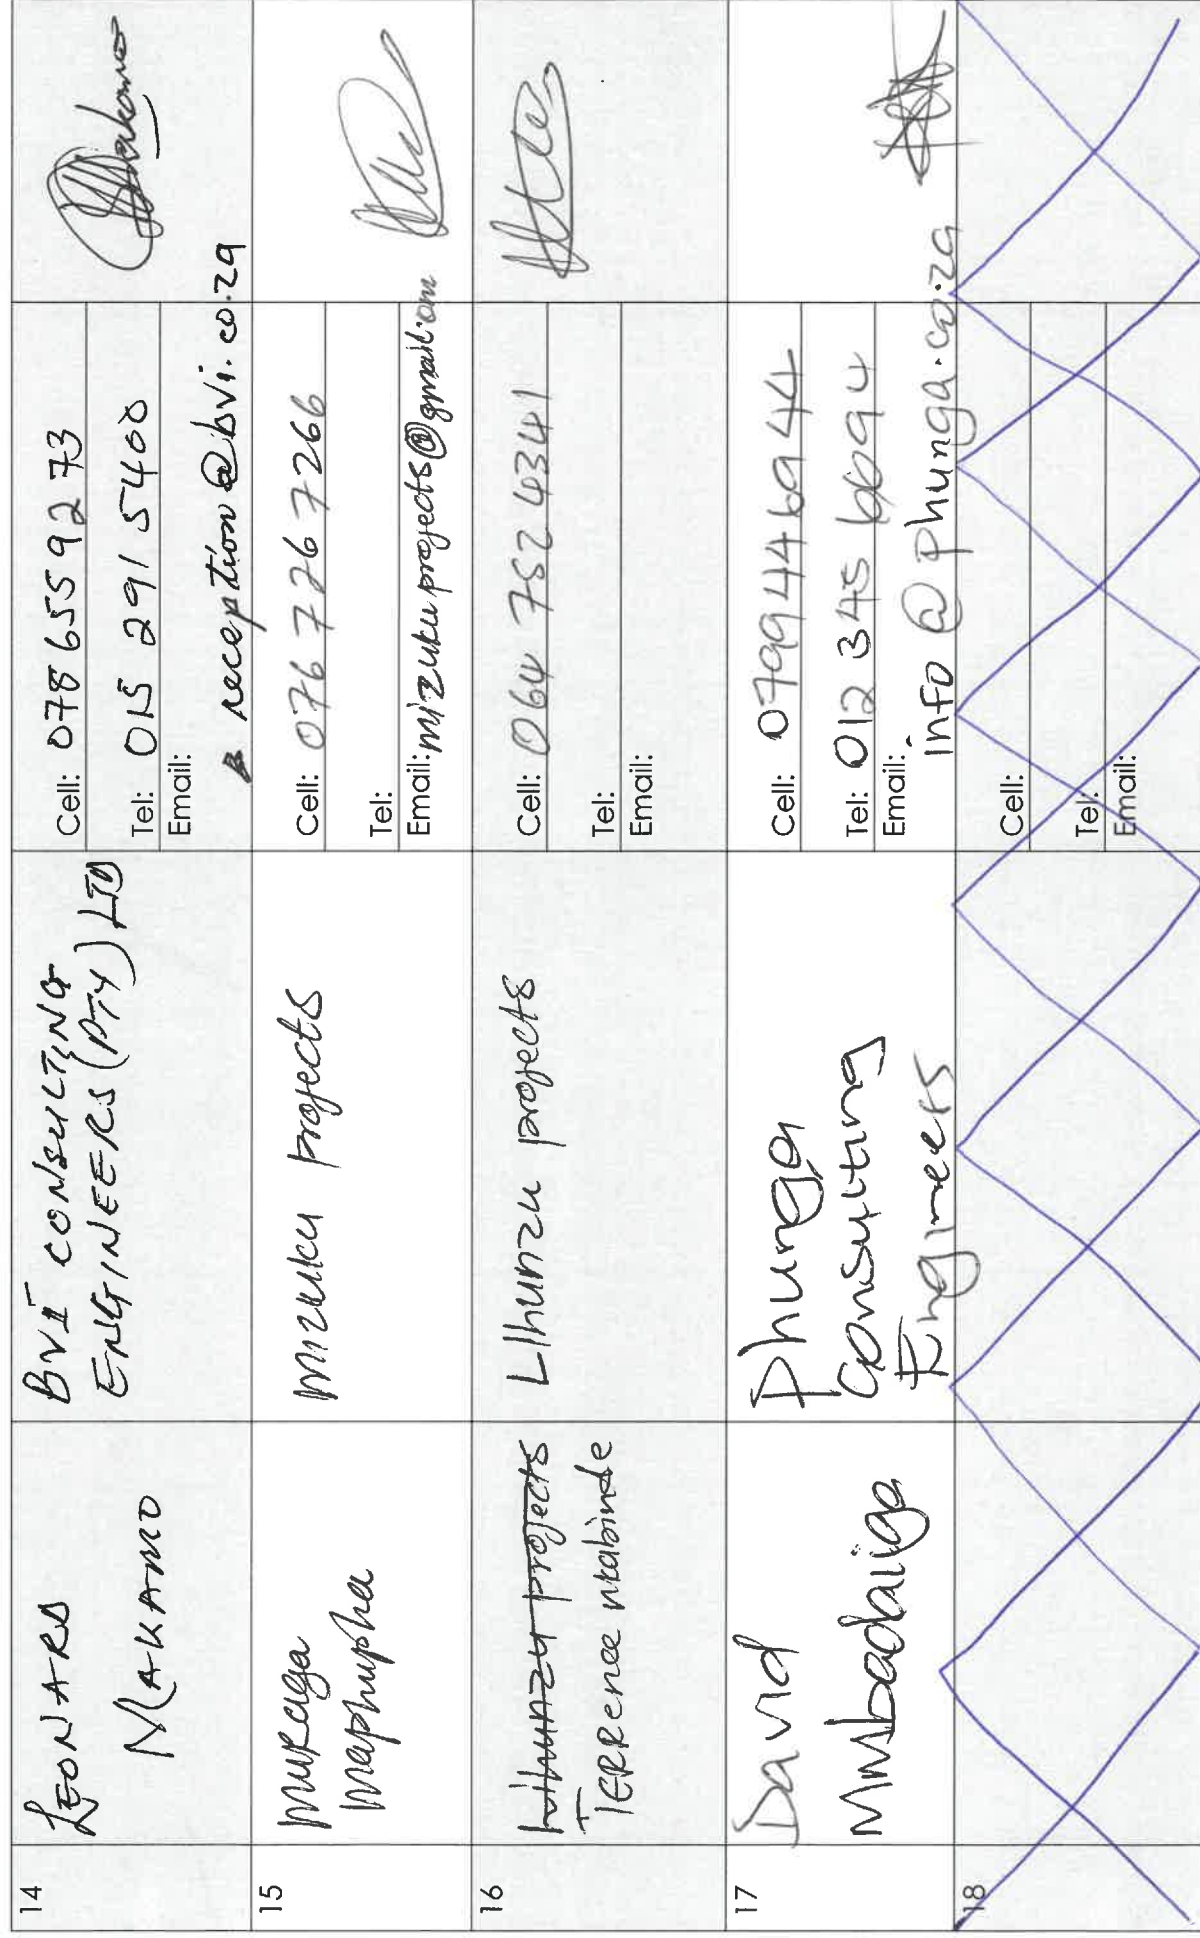 14
LEONARD
MAKAMO
BVI CONSULTING
ENGINEERS (PTY) LTD
Cell: 078 655 9273
Tel: 015 291 5400
Email:
reception@bvi.co.za
15
muraga
maphupha
mizuku projects
Cell: 076 726 7266
Tel:
Email: mizukuprojects@gmail.com
16
Lihunzu projects
TERRence nkabinde
Lihunzu projects
Cell: 064 752 4341
Tel:
Email:
17
David
Mmbadaliga
Phunga
Consulting
Engineers
Cell: 0799446944
Tel: 012 345 6694
Email:
info@phunga.co.za
18
Cell:
Tel:
Email: